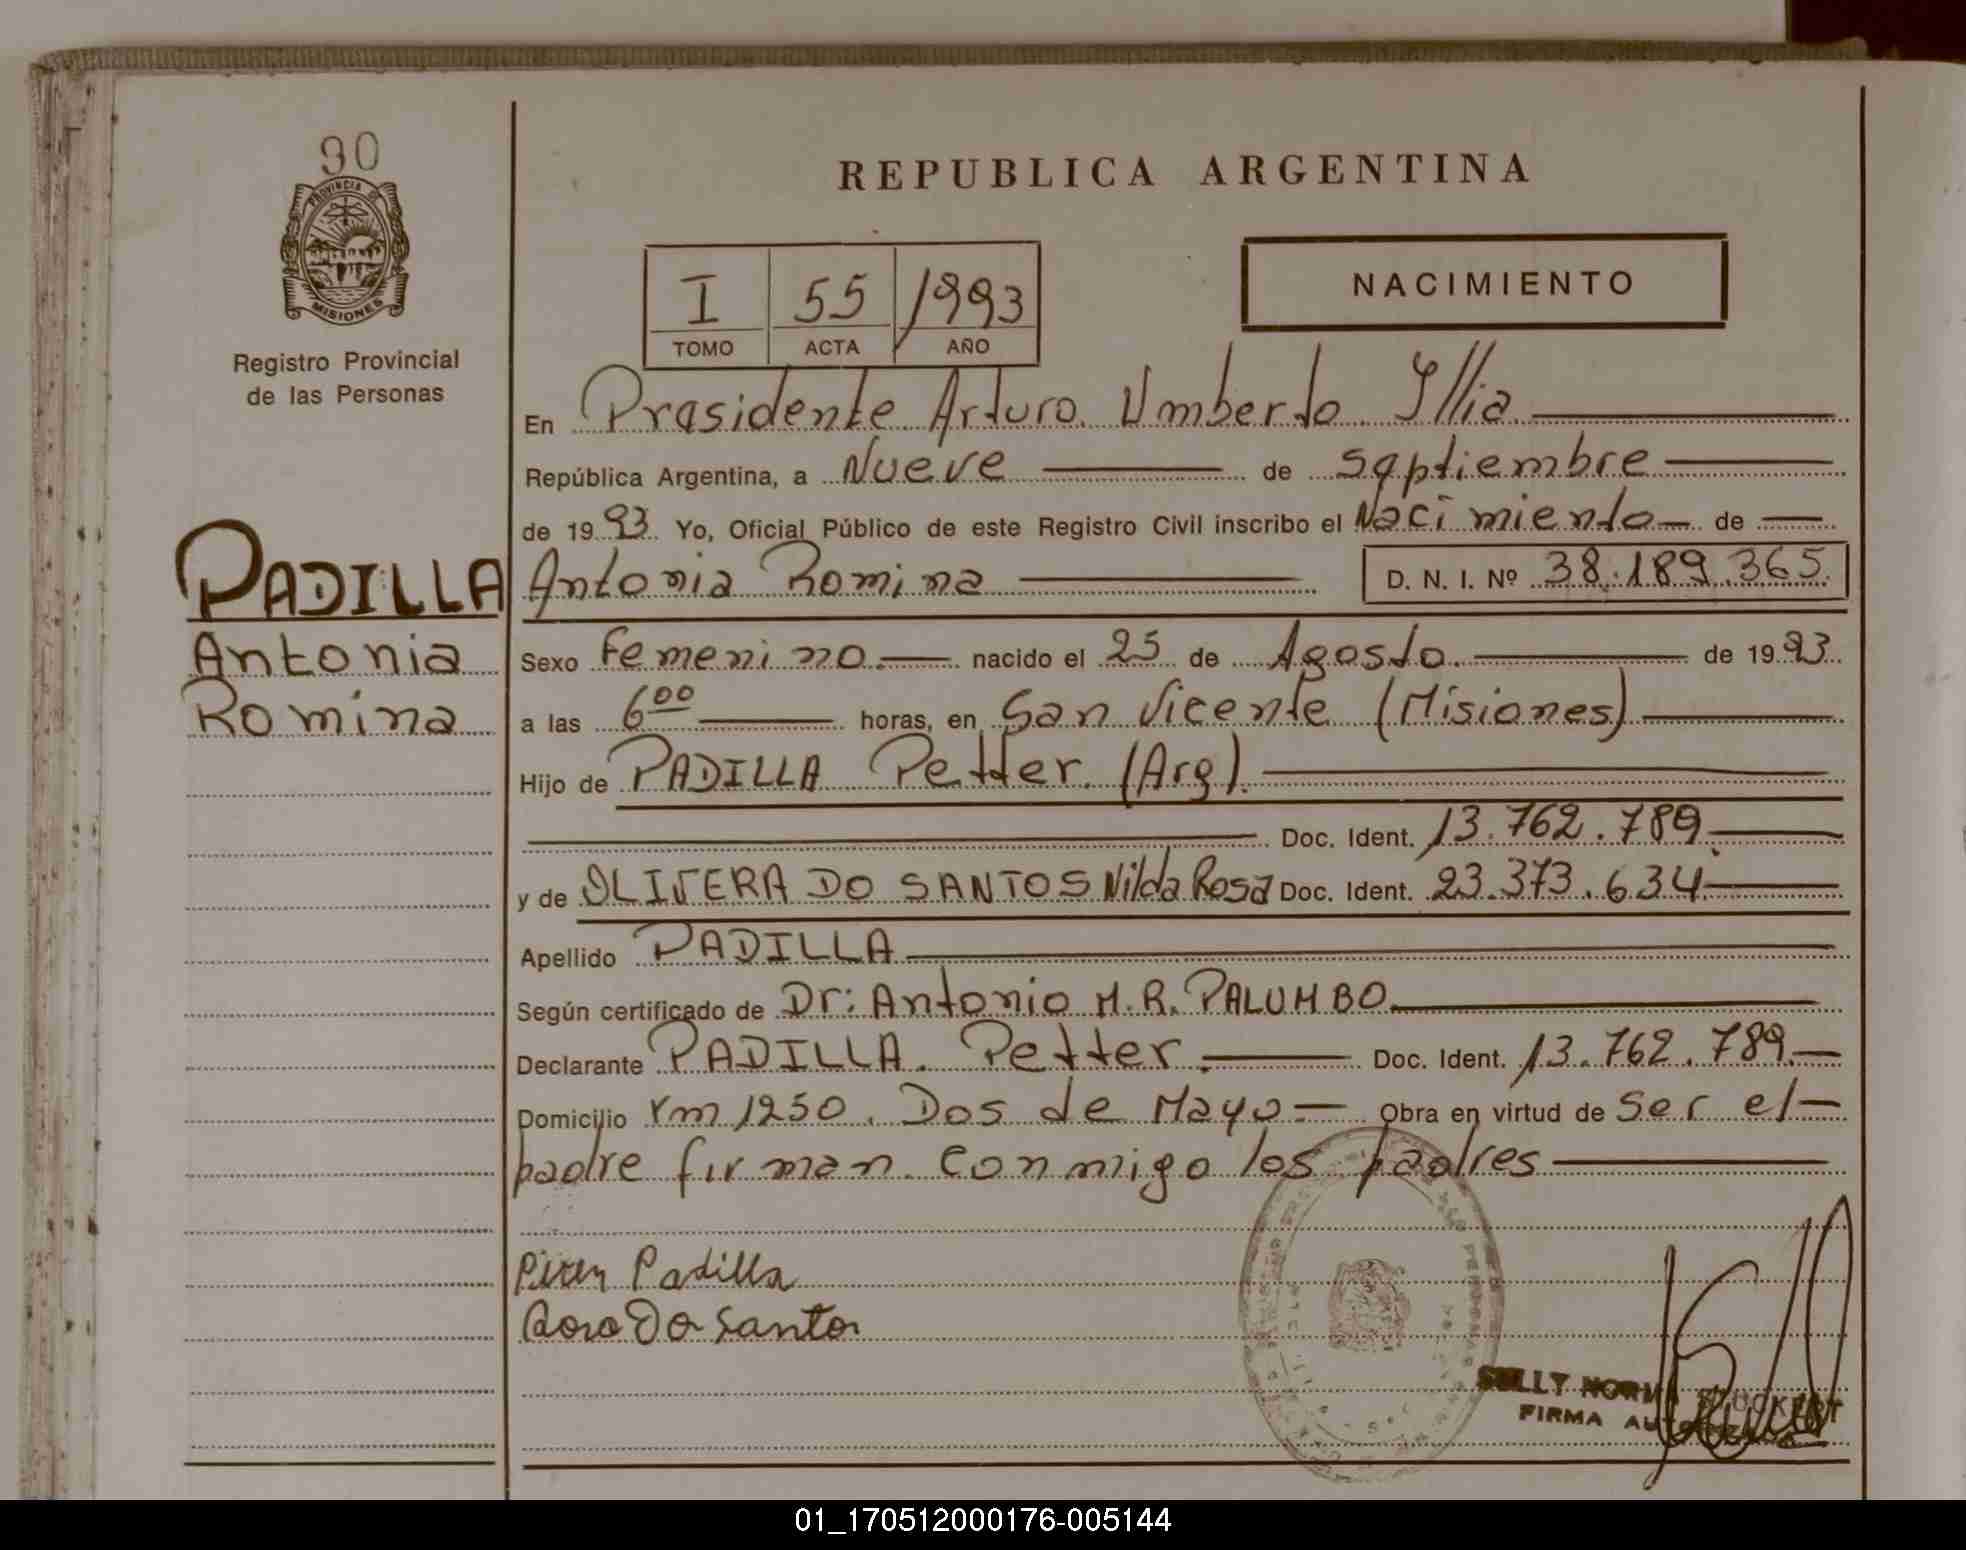 90
PROVINCIA DE
MISIONES
Registro Provincial
de las Personas
PADILLA
Antonia
Romina
REPUBLICA ARGENTINA
I 55 1993
TOMO ACTA AÑO
NACIMIENTO
En Presidente Arturo Umberto Illia
República Argentina, a Nueve de Septiembre
de 1993 Yo, Oficial Público de este Registro Civil inscribo el Nacimiento de
Antonia Romina D. N. I. Nº 38.189.365
Sexo Femenino nacido el 25 de Agosto de 1993
a las 6 00 horas, en San Vicente (Misiones)
Hijo de PADILLA Petter (Arg).
Doc. Ident. 13.762.789
y de OLIVERA DO SANTOS Nilda Rosa Doc. Ident. 23.373.634
Apellido PADILLA
Según certificado de Dr: Antonio M. R. PALUMBO
Declarante PADILLA. Petter. Doc. Ident. 13.762.789
Domicilio Km 1250. Dos de Mayo Obra en virtud de Ser el
padre firman conmigo los padres
Padilla
Do Santos
NORMA
FIRMA
01_170512000176-005144